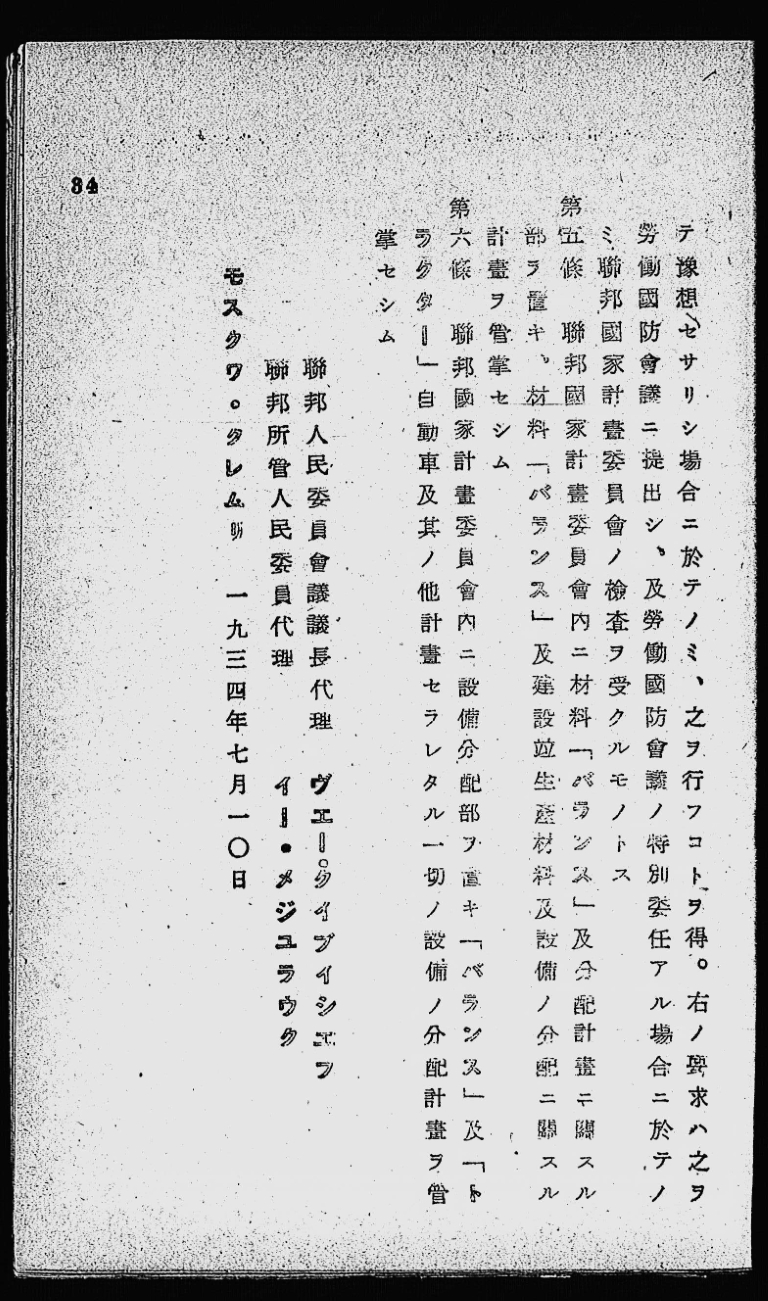 テ豫想セサリシ場合ニ於テノミ、之ヲ行フコトヲ得。右ノ要求ハ之ヲ
勞働國防會議ニ提出シ、及勞働國防會議ノ特別委任アル場合ニ於テノ
ミ聯邦國家計畫委員會ノ檢査ヲ受クルモノトス
第五條　聯邦國家計畫委員會內ニ材料「バランス」及分配計畫ニ關スル
部ヲ置キ、材料「バランス」及建設竝生產材料及設備ノ分配ニ關スル
計畫ヲ管掌セシム
第六條　聯邦國家計畫委員會內ニ設備分配部ヲ置キ「バランス」及「ト
ラクター」自動車及其ノ他計畫セラレタル一切ノ設備ノ分配計畫ヲ管
掌セシム
聯邦人民委員會議議長代理　ヴエー。クイブイシエフ
聯邦所管人民委員代理　イー・メジユラウク
モスクワ。クレムリ　一九三四年七月一〇日
34